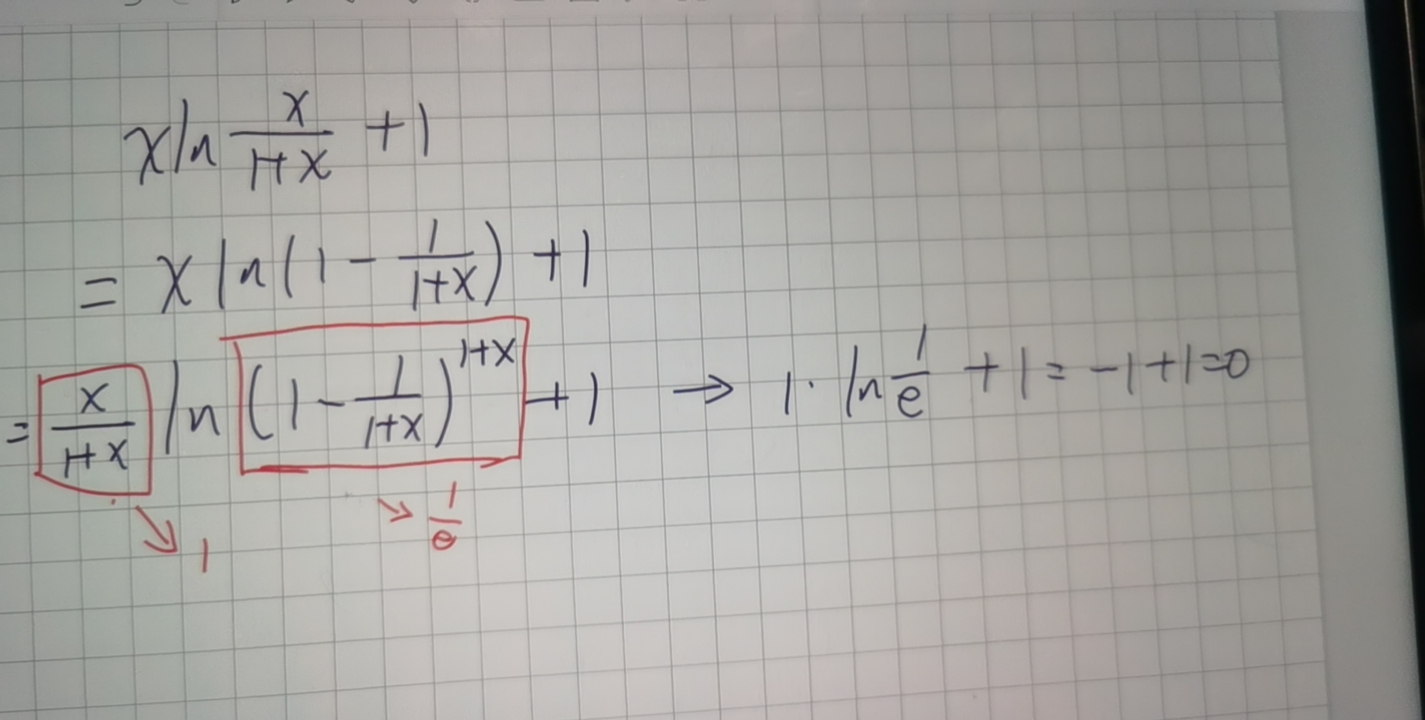 x ln x/(1+x) + 1
= x ln(1 - 1/(1+x)) + 1
= x/(1+x) ln (1 - 1/(1+x))^(1+x) + 1 → 1 · ln 1/e + 1 = -1 + 1 = 0
↘ 1 → 1/e